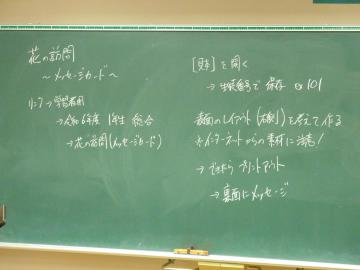 花の訪問
～メッセージカード～
リンク→学習者用
→令和6年度 1年生 総合
→花の訪問(メッセージカード)
[財]を開く
→出席番号で保存 ex 101
表面のレイアウト(右側)を考えて作る
※インターネットからの素材に注意!
→できたらプリントアウト
→裏面にメッセージ